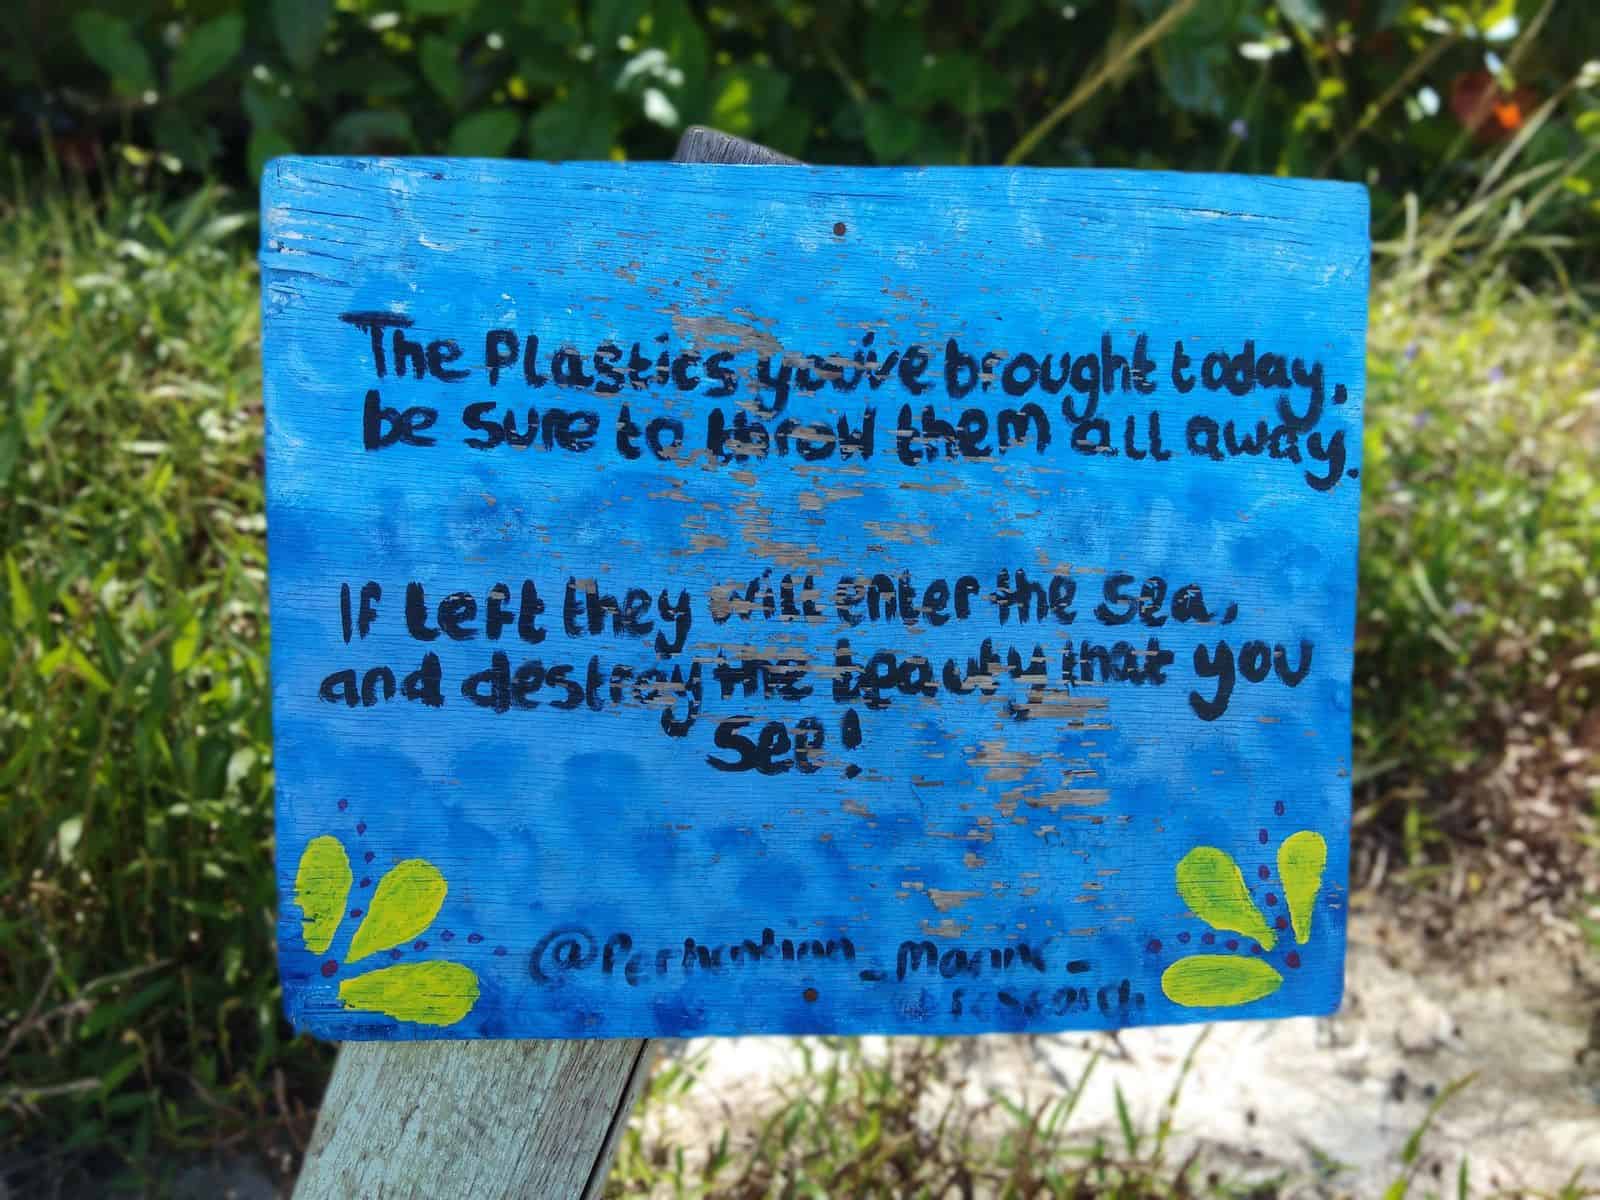 The Plastics you've brought today,
be sure to throw them all away.
If left they will enter the sea,
and destroy the beauty that you
see!
@Perhentian_marine_
research